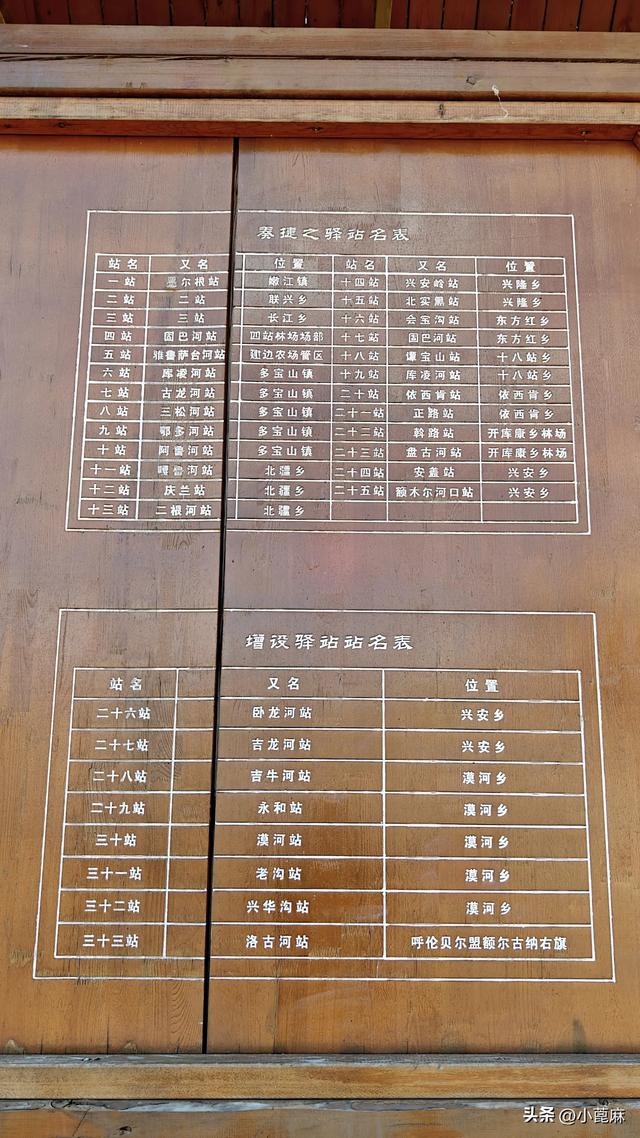 奏捷之驿站名表
站名 又名 位置 站名 又名 位置
一站 墨尔根站 嫩江镇 十四站 兴安岭站 兴隆乡
二站 二站 联兴乡 十五站 北实黑站 兴隆乡
三站 三站 长江乡 十六站 会宝沟站 东方红乡
四站 固巴河站 四站林场场部 十七站 固巴河站 东方红乡
五站 雅鲁萨台河站 建边农场管区 十八站 谭宝山站 十八站乡
六站 库凌河站 多宝山镇 十九站 库凌河站 十八站乡
七站 古龙河站 多宝山镇 二十站 依西肯站 依西肯乡
八站 三松河站 多宝山镇 二十一站 正路站 依西肯乡
九站 鄂多河站 多宝山镇 二十二站 斡路站 开库康乡林场
十站 阿鲁河站 多宝山镇 二十三站 盘古河站 开库康乡林场
十一站 鲁河站 北疆乡 二十四站 安羲站 兴安乡
十二站 庆兰站 北疆乡 二十五站 额木尔河口站 兴安乡
十三站 二根河站 北疆乡
增设驿站站名表
站名 又名 位置
二十六站 卧龙河站 兴安乡
二十七站 吉龙河站 兴安乡
二十八站 吉牛河站 漠河乡
二十九站 永和站 漠河乡
三十站 漠河站 漠河乡
三十一站 老沟站 漠河乡
三十二站 兴华沟站 漠河乡
三十三站 洛古河站 呼伦贝尔盟额尔古纳右旗
头条 @小蓖麻